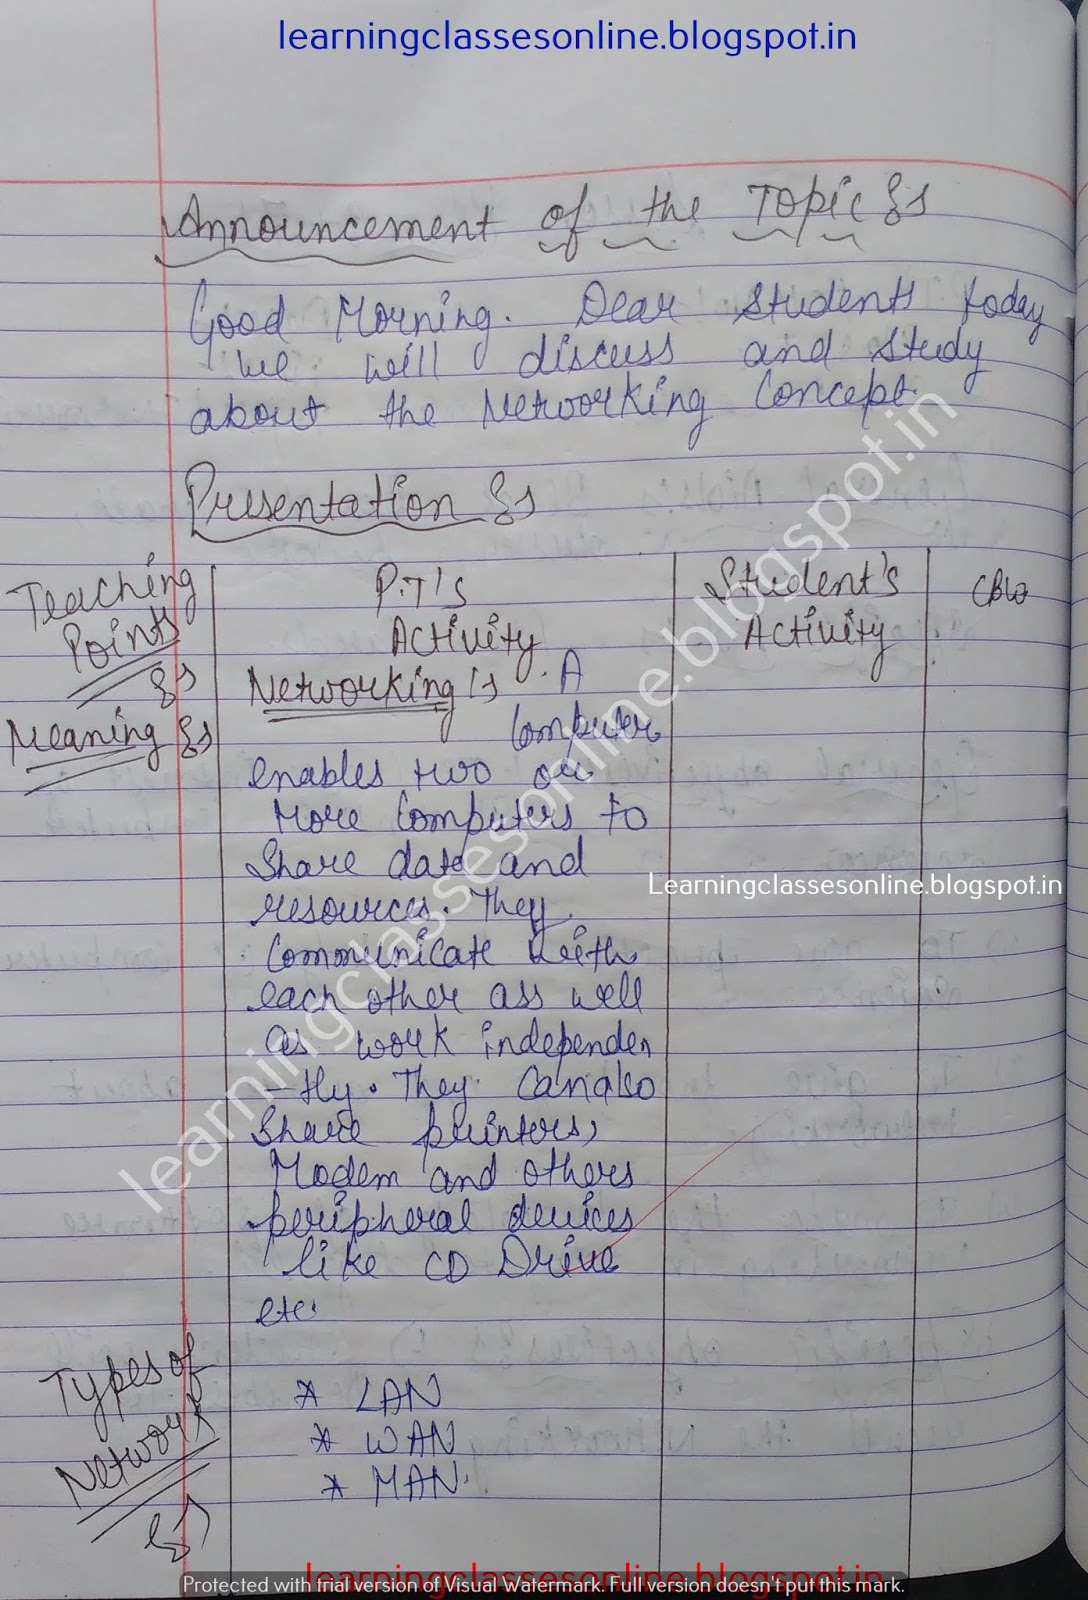 learningclassesonline.blogspot.in
Announcement of the Topic :-
Good Morning. Dear Students today
we will discuss and study
about the Networking Concept.
Presentation :-
Teaching
Points
:-
P.T'S
Activity
Student's
Activity
CBW
Meaning :-
Networking :- A
Computer
enables two or
More Computers to
Share data and
resources. They
Communicate with
each other ass well
as work independen
-tly. They can also
Share printers,
Modem and others
peripheral devices
like CD Drive
etc.
Learningclassesonline.blogspot.in
learningclassesonline.blogspot.in
Types of
Network
:-
* LAN
* WAN
* MAN.
learningclassesonline.blogspot.in
Protected with trial version of Visual Watermark. Full version doesn't put this mark.